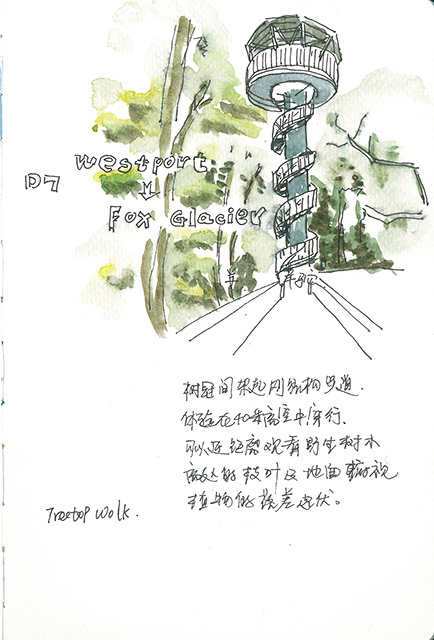 D7
Westport
↓
Fox Glacier
树冠间架起网络松步道.
体验在40米高空中穿行.
可以近距离观看野生树木
高处的枝叶及地面俯视
植物的落差起伏。
Treetop Walk.